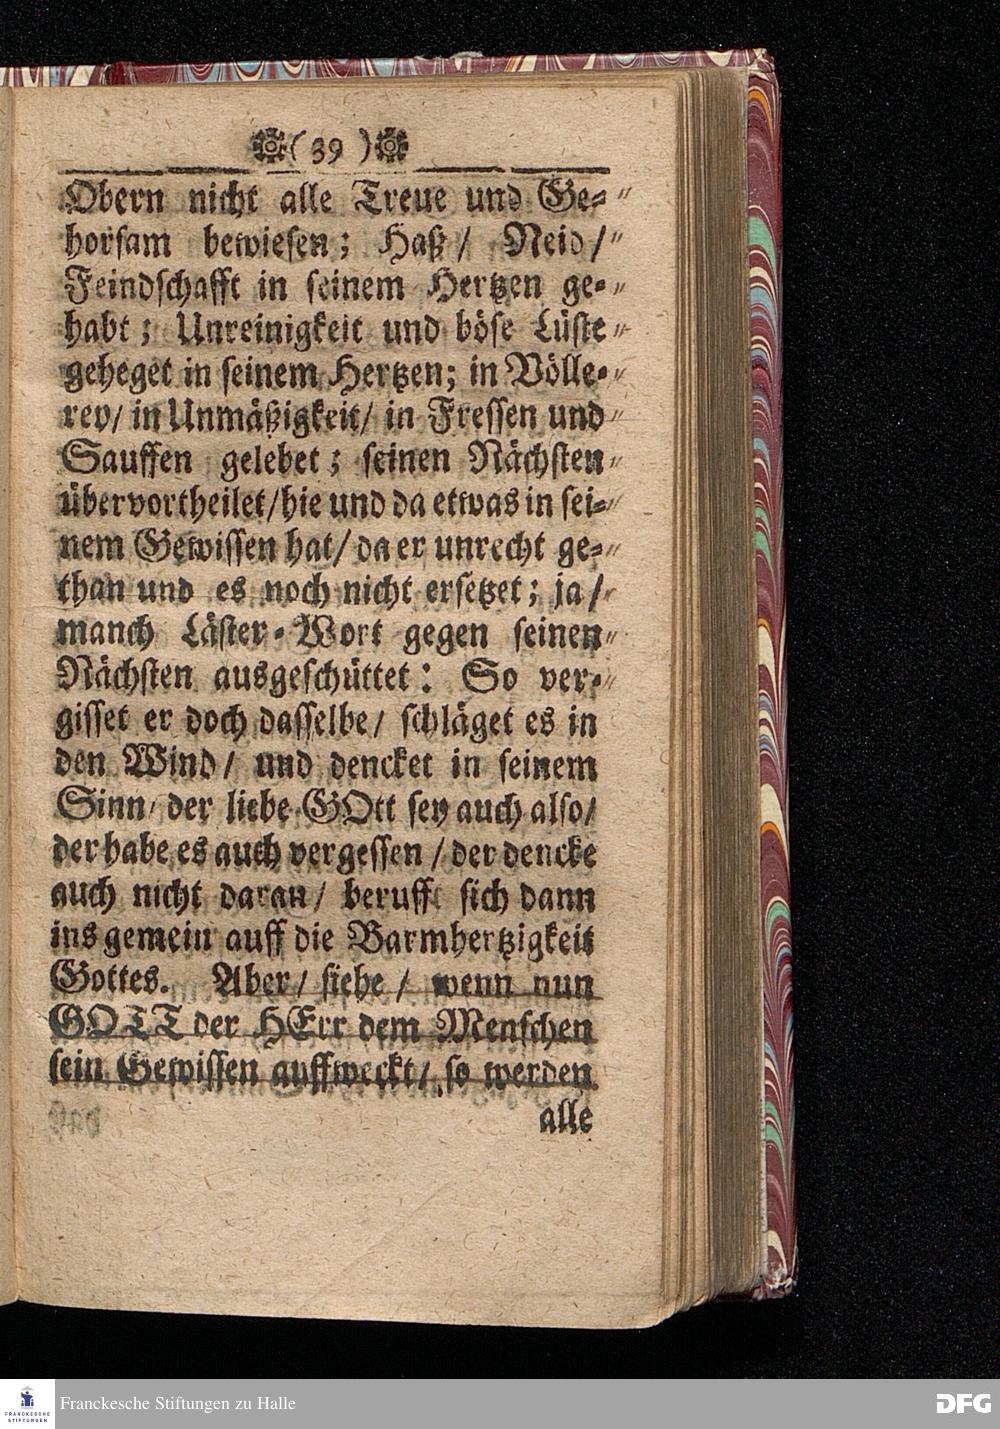 ( 39 )
Obern nicht alle Treue und Ge-〃
horsam bewiesen; Haß/ Neid/〃
Feindschafft in seinem Hertzen ge-〃
habt; Unreinigkeit und böse Lüste〃
geheget in seinem Hertzen; in Völle-〃
rey/ in Unmäßigkeit/ in Fressen und〃
Sauffen gelebet; seinen Nächsten〃
übervortheilet/hie und da etwas in sei-〃
nem Gewissen hat/ da er unrecht ge-〃
than und es noch nicht ersetzet; ja/〃
manch Läster-Wort gegen seinen〃
Nächsten ausgeschüttet: So ver-〃
gisset er doch dasselbe/ schläget es in
den Wind/ und dencket in seinem
Sinn/ der liebe GOtt sey auch also/
der habe es auch vergessen/ der dencke
auch nicht daran/ berufft sich dann
ins gemein auff die Barmhertzigkeit
Gottes. Aber/ siehe/ wenn nun
GOTT der HErr dem Menschen
sein Gewissen auffweckt/ so werden
alle
FRANCKESCHE
STIFTUNGEN
Franckesche Stiftungen zu Halle
DFG